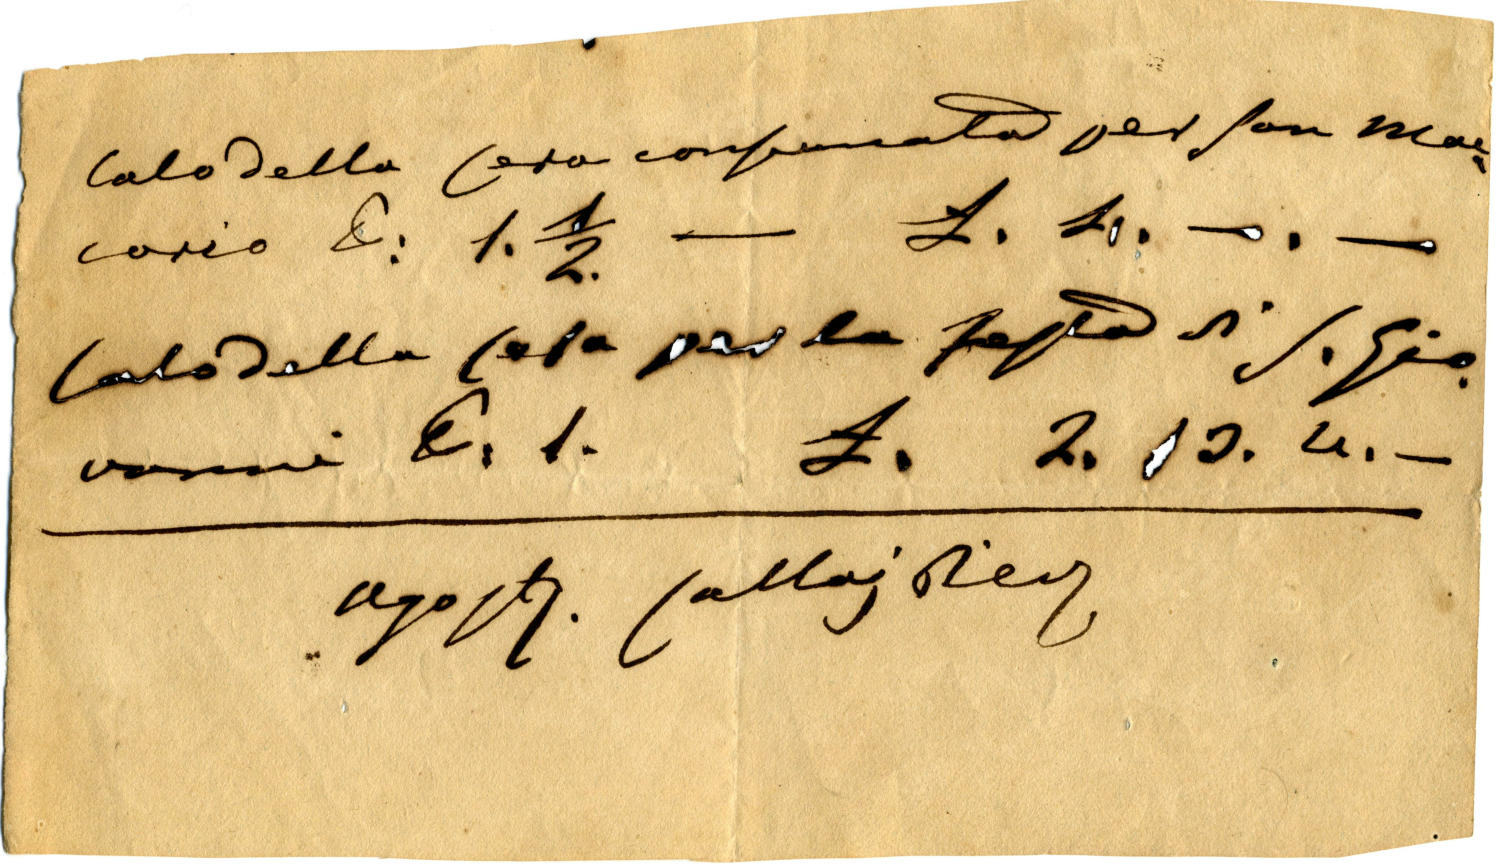 Calo della Cera consumata per San Mac=
cario £. 1. 1/2 — £. 4. —. —
Calo della Cera per la festa di S. Gio.
vanni £. 1. £. 2. 13. 4. —
Agost.